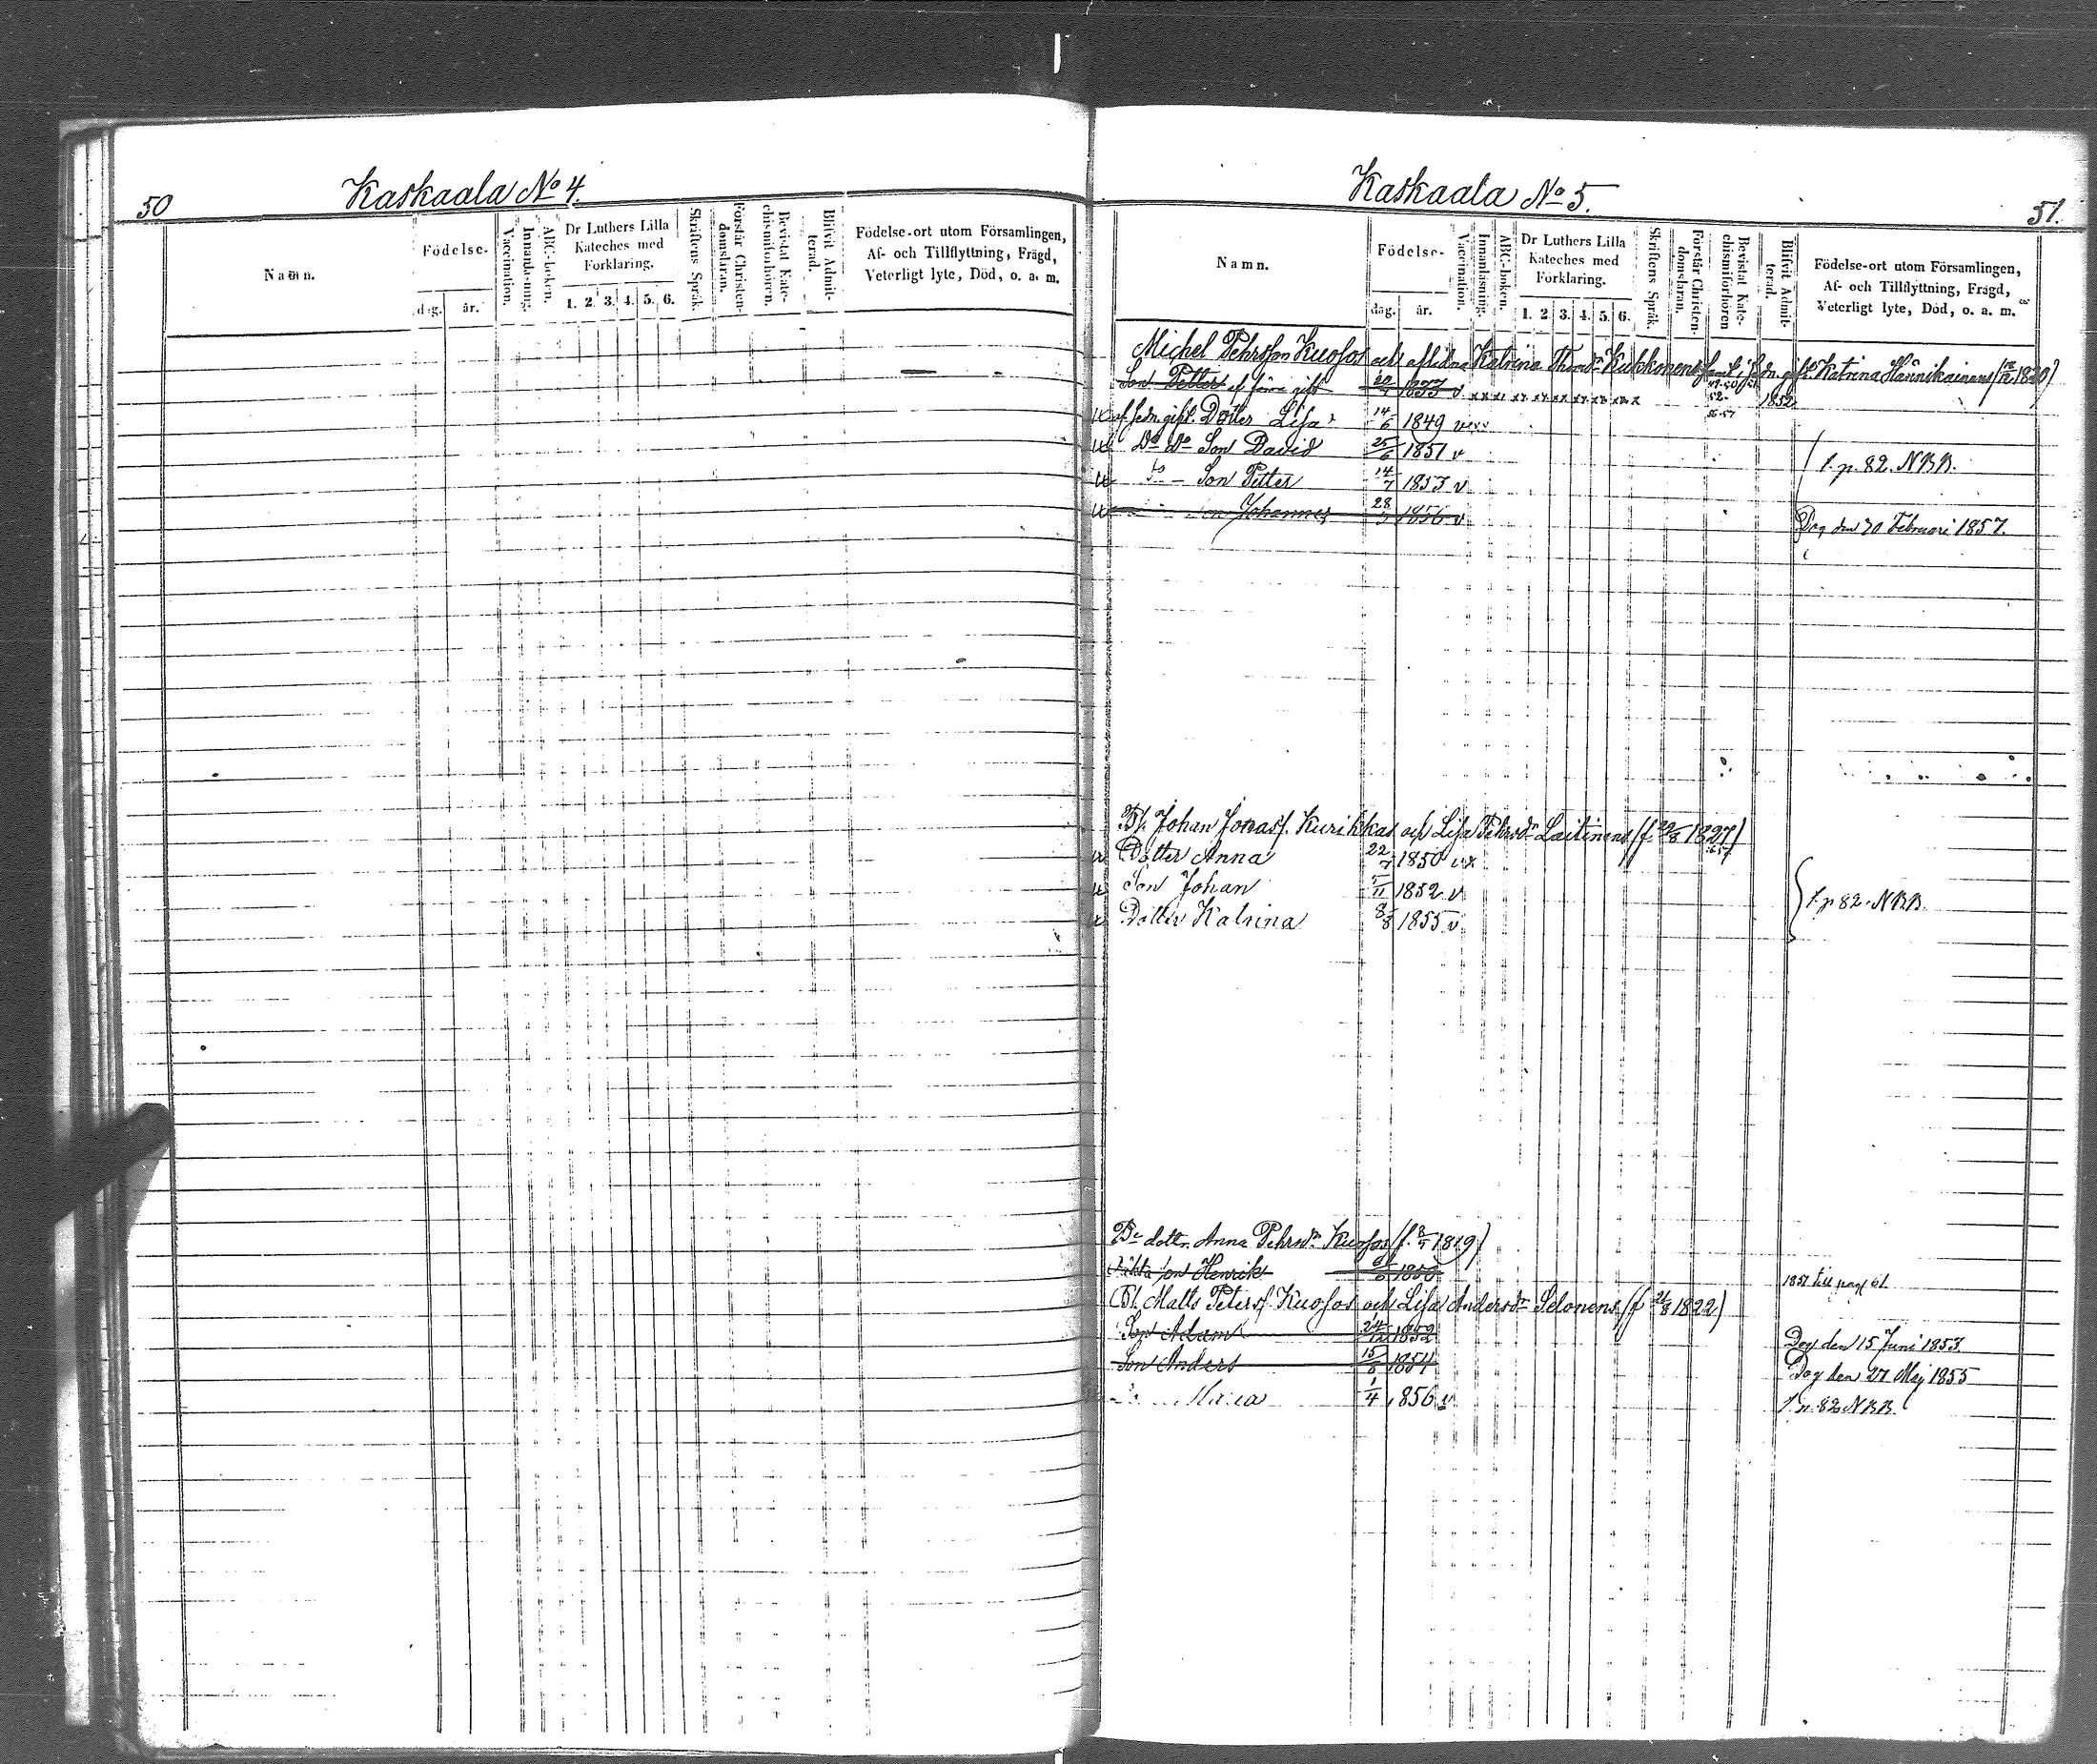 50
Kaskaala No 4.
Namn.
Födelse-
dag. år.
Vaccination.
Innanläsning.
ABC-boken.
Dr Luthers Lilla
Kateches med
Förklaring.
1. 2. 3. 4. 5. 6.
Skriftens Språk.
Förstår Christen-
domsläran.
Bevistat Kate-
chismiförhören.
Blifvit Admit-
terad.
Födelse-ort utom Församlingen,
Af- och Tillflyttning, Frägd,
Veterligt lyte, Död, o. a. m.
Kaskaala No 5.
51.
Namn.
Födelse-
dag. år.
Vaccination.
Innanläsning.
ABC-boken.
Dr Luthers Lilla
Kateches med
Förklaring.
1. 2. 3. 4. 5. 6.
Skriftens Språk.
Förstår Christen-
domsläran.
Bevistat Kate-
chismiförhören
Blifvit Admit-
terad.
Födelse-ort utom Församlingen,
Af- och Tillflyttning, Frägd,
Veterligt lyte, Död, o. a. m.
Michel Pehrsson Kuosos och aflidna Katrina Kukkonens gift Katrina Hännikainens 1820)
Son Petter af förra gift 1833 v 1852
af sedn. gift. Dotter Lisa 14/6 1849
Do Do Son David 25/6 1851 v
Son Petter 14/7 1853 v f. p. 82. NBB.
Johannes 28 1856 v Dog den 20 Februari 1857.
Bf. Johan Jonass. Kurikkas och Lisa Pehrsdr Laitinens (f. 1827)
Dotter Anna 22/7 1850 vx
Son Johan 5/11 1852 v
Dotter Katrina 8/8 1855 v f. p 82. NBB.
dottr. Anna Pehrsdr Kuosos (f. 1819)
son Henrik 1850 1851 till pag 61.
Bf. Matts Peterss. Kuosos och Lisa Andersdr Selonens (f 21/8 1822)
Son Adam 24/12 1852 Dog den 15 Juni 1853.
Son Anders 15/8 1854 Dog den 27 Maj 1855
Maria 1/4 1856 v f. p. 82 NBB.